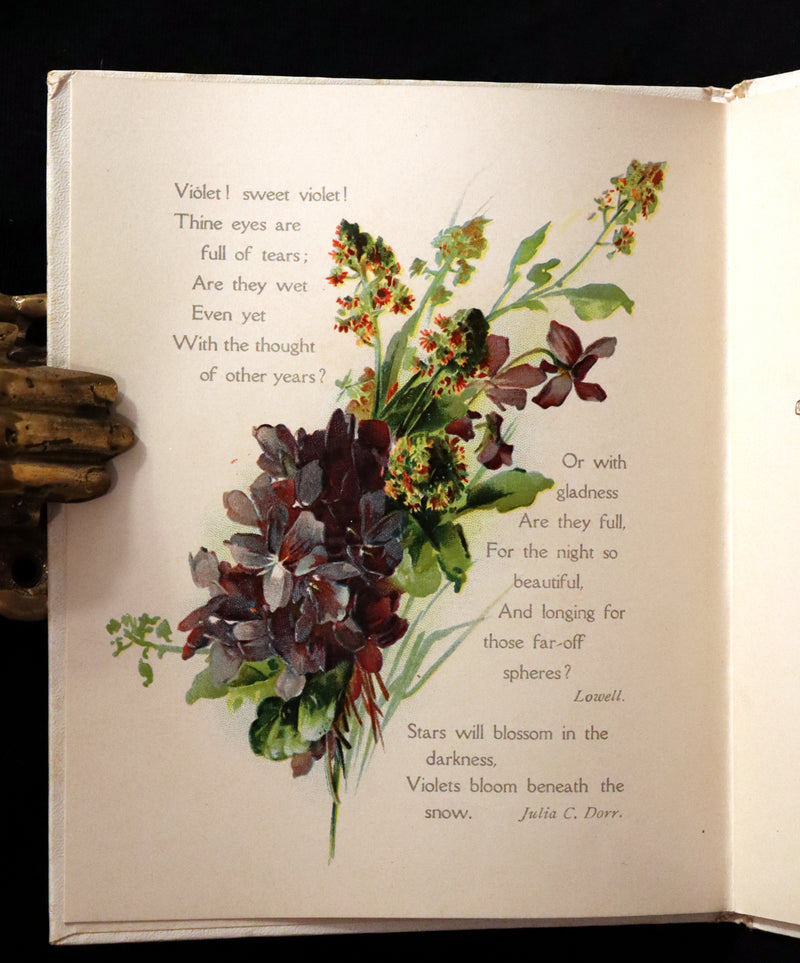 Violet! sweet violet!
Thine eyes are
full of tears;
Are they wet
Even yet
With the thought
of other years?
Or with
gladness
Are they full,
For the night so
beautiful,
And longing for
those far-off
spheres?
Lowell.
Stars will blossom in the
darkness,
Violets bloom beneath the
snow. Julia C. Dorr.